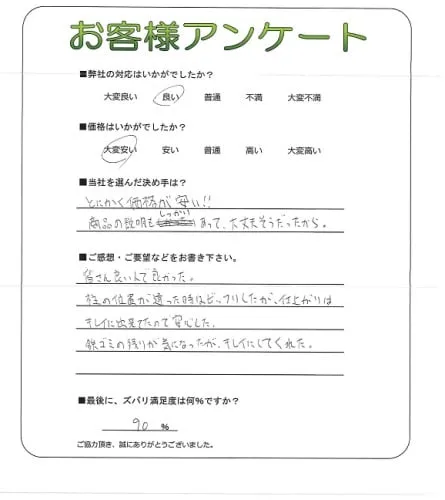 お客様アンケート
■弊社の対応はいかがでしたか？
大変良い 良い 普通 不満 大変不満
■価格はいかがでしたか？
大変安い 安い 普通 高い 大変高い
■当社を選んだ決め手は？
とにかく価格が安い!!
しっかり
商品の説明も あって、大丈夫そうだったから。
■ご感想・ご要望などをお書き下さい。
皆さん良い人で良かった。
柱の位置が違った時はビックリしたが、仕上がりは
キレイに出来てたので安心した。
鉄ゴミの残りが気になったが、キレイにしてくれた。
■最後に、ズバリ満足度は何%ですか？
90 %
ご協力頂き、誠にありがとうございました。